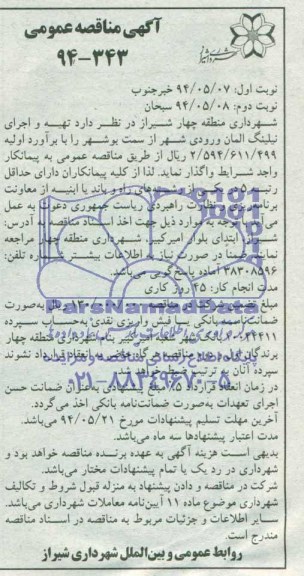 آگهی مناقصه عمومی
۹۴-۳۴۳
نوبت اول: ۹۴/۰۵/۰۷ خبرجنوب
نوبت دوم: ۹۴/۰۵/۰۸ سبحان
شهرداری منطقه چهار شیراز در نظر دارد تهیه و اجرای
نیلینگ المان ورودی شهر از سمت بوشهر را با برآورد اولیه
۲/۵۹۴/۶۱۱/۴۹۹ ریال از طریق مناقصه عمومی به پیمانکار
واجد شرایط واگذار نماید. لذا از کلیه پیمانکاران دارای حداقل
رتبه ۵ یکی از رشته‌های راه و باند یا ابنیه از معاونت
برنامه‌ریزی و نظارت راهبردی ریاست جمهوری دعوت به عمل
می‌آید با توجه به موارد ذیل جهت اخذ اسناد مناقصه به آدرس:
شیراز ابتدای بلوار امیرکبیر شهرداری منطقه چهار مراجعه
نمایند. ضمنا در صورت نیاز به اطلاعات بیشتر شماره تلفن:
۳۸۳۰۸۵۹۶ آماده پاسخ‌گویی می‌باشد.
مدت انجام کار: ۴۵ روز کاری
مبلغ تضمین شرکت در مناقصه ریال به‌صورت
ضمانت‌نامه بانکی یا فیش واریزی نقدی به‌حساب سپرده
شهرداری منطقه چهار
برندگان اول تا سوم مناقصه هرگاه حاضر به انعقاد قرارداد نشوند
سپرده آنان به ترتیب ضبط خواهد شد.
در زمان انعقاد قرارداد ۵٪ مبلغ پیشنهادی به‌عنوان ضمانت حسن
اجرای تعهدات به‌صورت ضمانت‌نامه بانکی اخذ می‌گردد.
آخرین مهلت تسلیم پیشنهادات مورخ ۹۴/۰۵/۲۱ می‌باشد.
مدت اعتبار پیشنهادها سه ماه می‌باشد.
بدیهی است هزینه آگهی به عهده برنده مناقصه خواهد بود و
شهرداری در رد یک یا تمام پیشنهادات مختار می‌باشد.
شرکت در مناقصه و دادن پیشنهاد به منزله قبول شروط و تکالیف
شهرداری موضوع ماده ۱۱ آیین‌نامه معاملات شهرداری می‌باشد.
سایر اطلاعات و جزئیات مربوط به مناقصه در اسناد مناقصه
مندرج است.
روابط عمومی و بین‌الملل شهرداری شیراز
ParsNamadData
۰۲۱-۸۸۳۴۹۶۷۰-۵